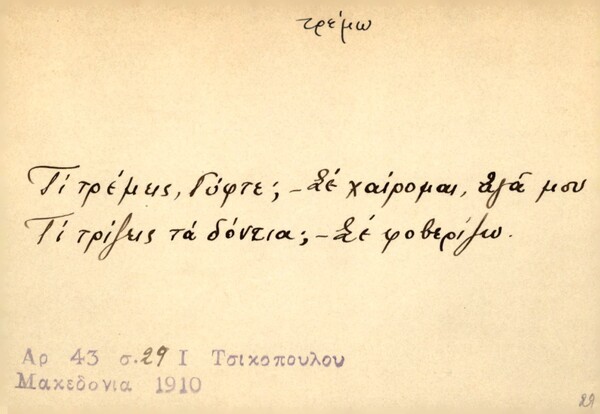 τρέμω
Τί τρέμεις, Γύφτε; – Σέ χαίρομαι, αγά μου
Τί τρίζεις τά δόντια; – Σέ φοβερίζω.
Αρ 43 σ. 29 Ι Τσικοπουλου
Μακεδονια 1910
29